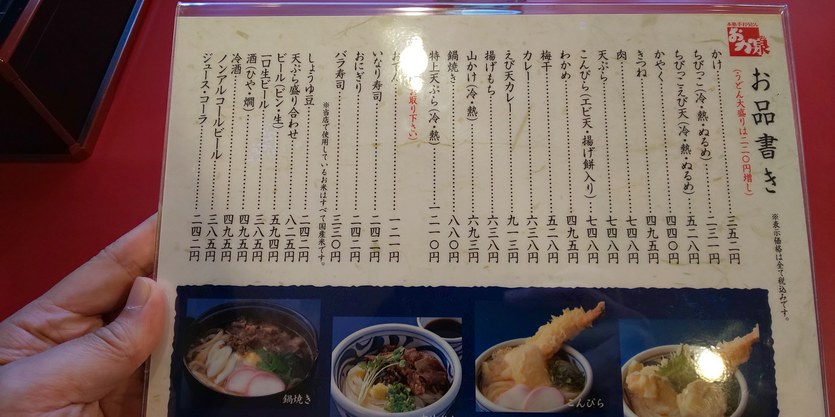 ※表示価格は全て税込みです。
お品書き
(うどん大盛りは二二〇円増し)
かけ……三五二円
ちびっこ(冷・熱・ぬるめ)……二三一円
ちびっこえび天(冷・熱・ぬるめ)……五二八円
かやく……四四〇円
きつね……四九五円
肉……七四八円
天ぷら……七四八円
こんぴら(エビ天・揚げ餅入り)……七四八円
わかめ……四九五円
梅干……五二八円
カレー……六三八円
えび天カレー……九一三円
揚げもち……六三八円
山かけ(冷・熱)……六九三円
鍋焼き……八八〇円
特上天ぷら(冷・熱)……一二一〇円
取り下さい)
……一二一円
いなり寿司……二四二円
おにぎり……二四二円
バラ寿司……三三〇円
※当店で使用しているお米はすべて国産米です。
しょうゆ豆……二四二円
天ぷら盛り合わせ……八二五円
ビール(ビン・生)……五九四円
一口生ビール……三八五円
酒(ひや・燗)……四九五円
冷酒……四九五円
ノンアルコールビール……三八五円
ジュース・コーラ……二四二円
鍋焼き
こんぴら